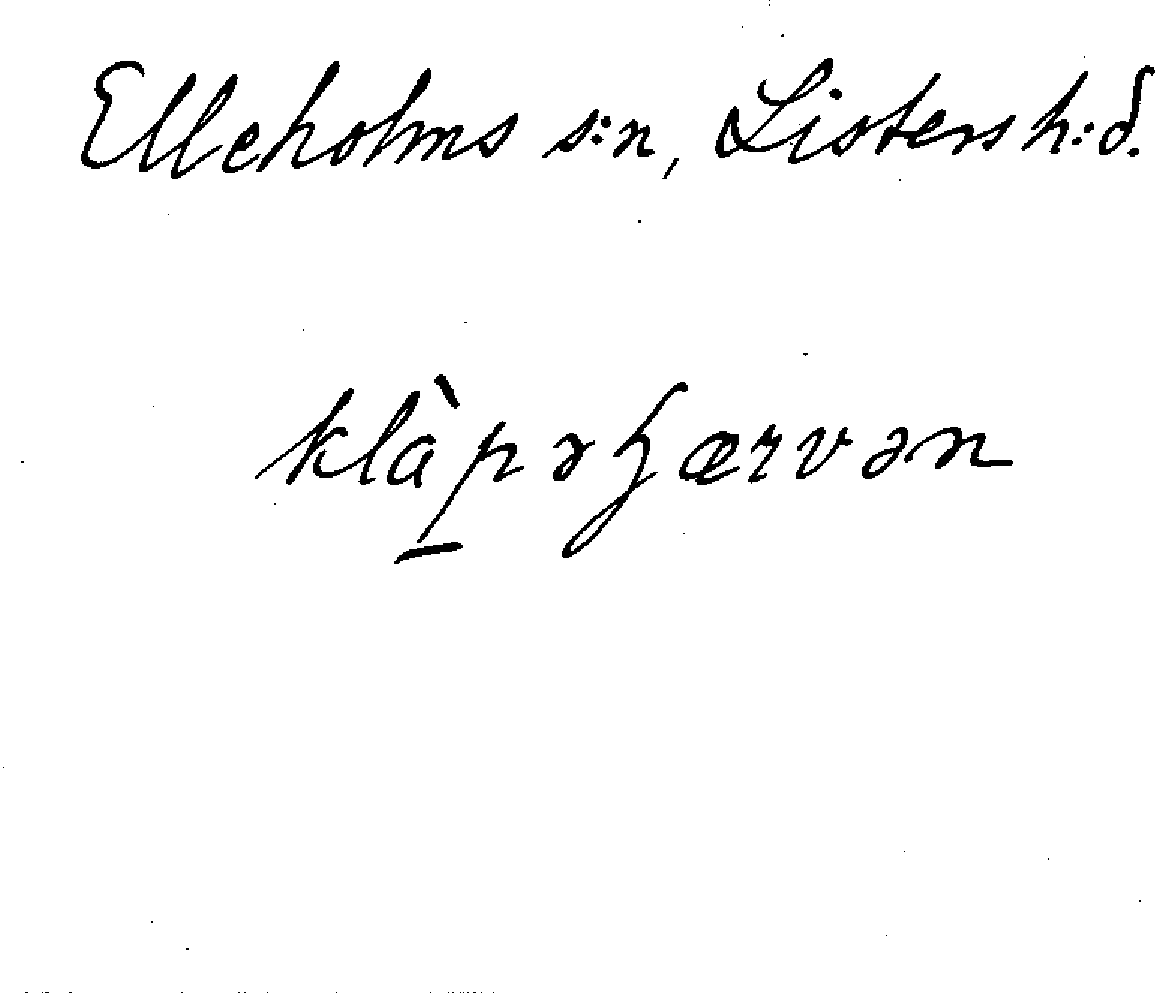 Elleholms s:n, Listers h:d.
klàpəɧærvən